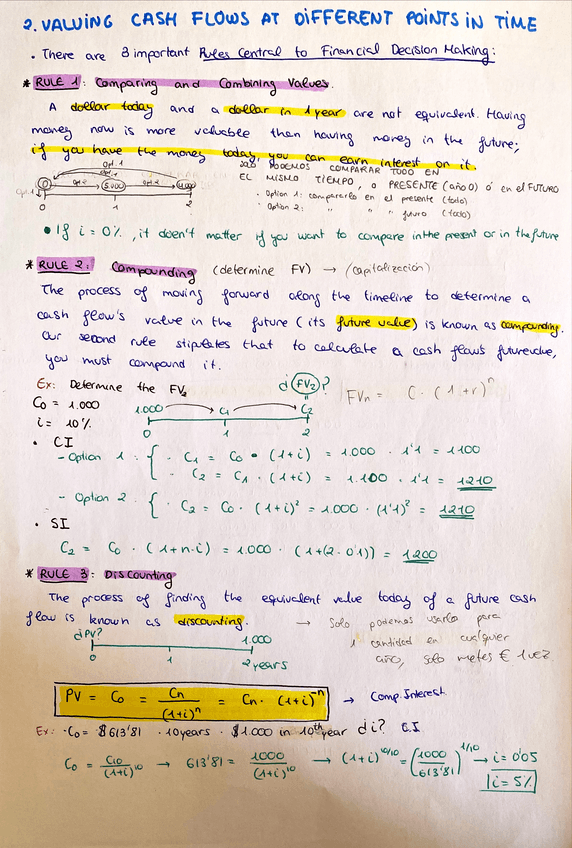 2. VALUING CASH FLOWS AT DIFFERENT POINTS IN TIME
· There are 3 important Rules Central to Financial Decision Making:
* RULE 1: Comparing and Combining Values.
A dollar today and a dollar in 1 year are not equivalent. Having
money now is more valuable than having money in the future;
if you have the money today, you can earn interest on it.
opt.1
opt.1
opt.2
opt.2
5.000
0 1 2
PODEMOS COMPARAR TODO EN
EL MISMO TIEMPO, o PRESENTE (año 0) ó en el FUTURO
· Option 1: compararlo en el presente (todo)
· Option 2: " " " futuro (todo)
• If i = 0%, it doesn't matter if you want to compare in the present or in the future
* RULE 2: Compounding (determine FV) → (capitalización)
The process of moving forward along the timeline to determine a
cash flow's value in the future (its future value) is known as compounding.
Our second rule stipulates that to calculate a cash flows future value,
you must compound it.
Ex: Determine the FV2
¿FV2?
FVn = C · (1+r)^n
C0 = 1.000
i = 10%
1.000 C1 C2
0 1 2
· CI
- Option 1: { · C1 = C0 • (1+i) = 1.000 · 1'1 = 1100
· C2 = C1 · (1+i) = 1.100 · 1'1 = 1210
- Option 2 { · C2 = C0 · (1+i)² = 1.000 · (1'1)² = 1210
· SI
C2 = C0 · (1+n·i) = 1.000 · (1+(2·0'1)) = 1200
* RULE 3: Discounting
The process of finding the equivalent value today of a future cash
flow is known as discounting.
→ Solo podemos usarlo para
1 cantidad en cualquier
año, solo metes € 1 vez.
¿PV? 1.000
1 2 years
PV = C0 = Cn/(1+i)^n = Cn · (1+i)^-n → Comp. Interest
Ex: · C0 = $613'81 · 10 years · $1.000 in 10th year ¿i? C.I
C0 = C10/(1+i)^10 → 613'81 = 1000/(1+i)^10 → (1+i)^10/10 = (1000/613'81)^1/10 → i = 0'05
i = 5%